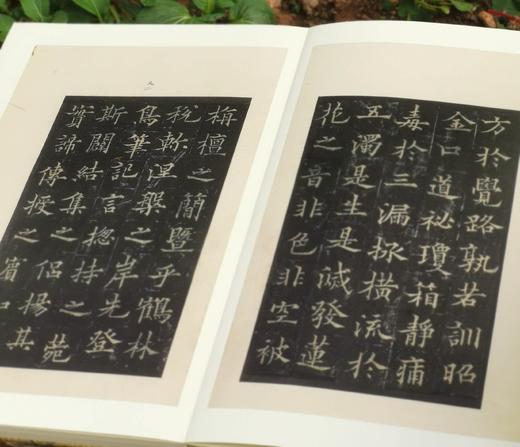 方於覺路孰若訓昭
金口道祕瓊箱靜痛
毒於三漏拯橫流於
五濁是生是滅發蓮
花之音非色非空被
栴檀之簡暨乎鶴林
稅軫涅槃之岸先登
鳥筆記言揔持之苑
斯闢結集之侶揚其
實諦傳授之賓